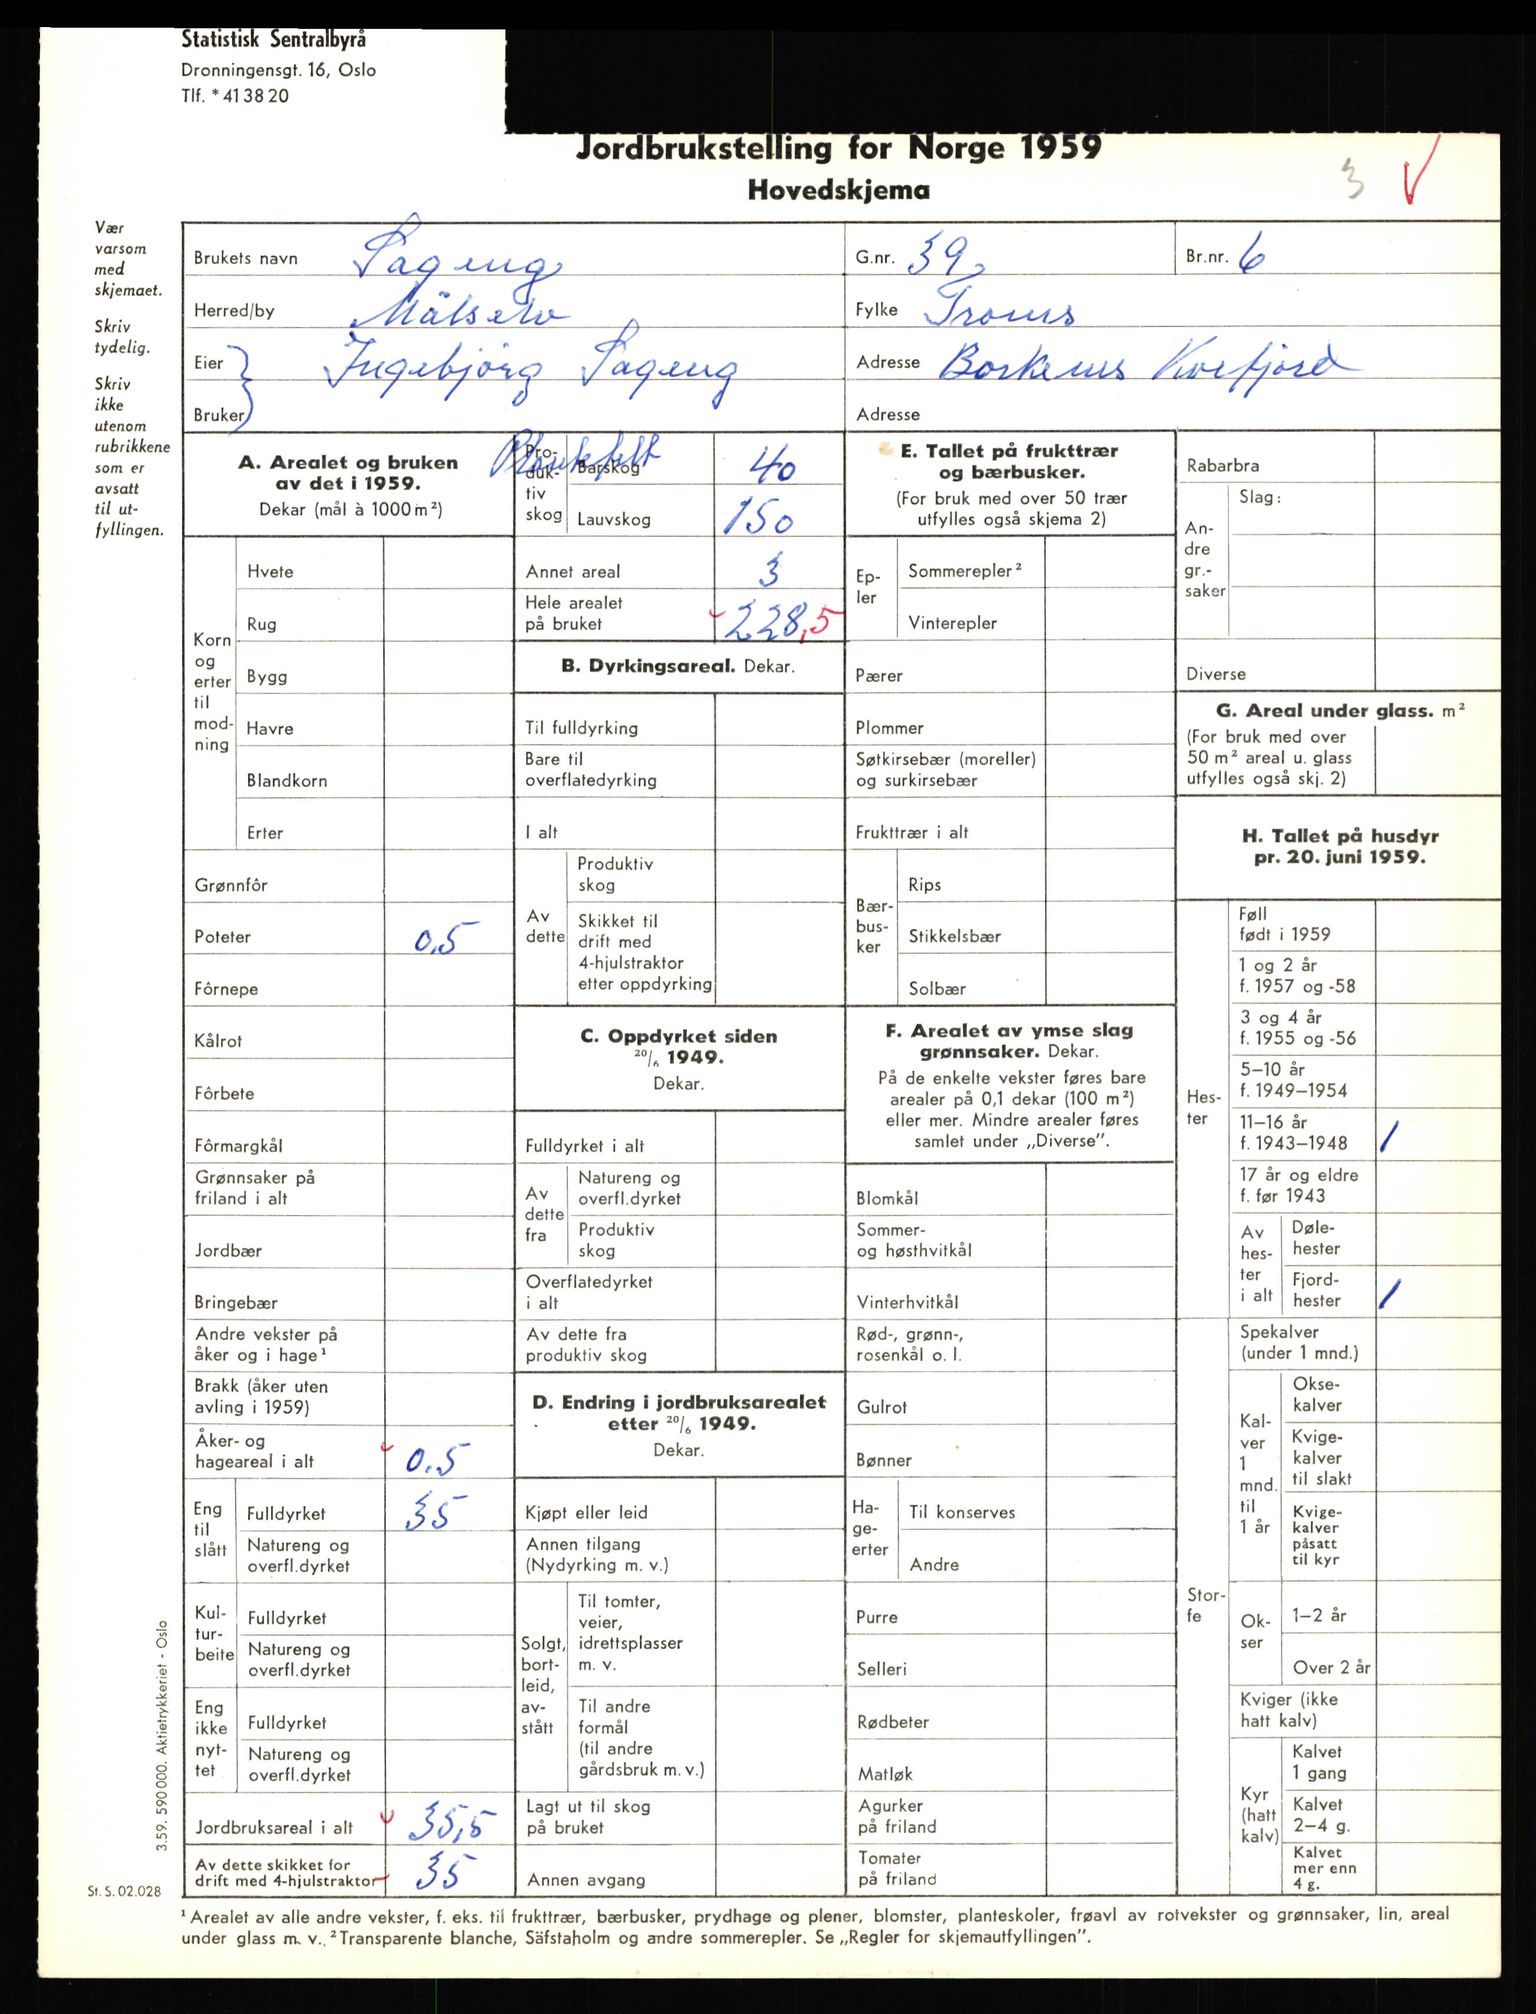 Statistisk Sentralbyrå
Dronningensgt. 16, Oslo
Tlf. * 41 38 20
Jordbrukstelling for Norge 1959
Hovedskjema
3
Vær
varsom
med
skjemaet.
Skriv
tydelig.
Skriv
ikke
utenom
rubrikkene
som er
avsatt
til ut-
fyllingen.
Brukets navn Sageng
G.nr. 39
Br.nr. 6
Herred/by Målselv
Fylke Troms
Eier } Ingebjörg Sageng
Adresse Borkenes Kvefjord
Bruker
Adresse
A. Arealet og bruken
av det i 1959.
Dekar (mål à 1000 m²)
Korn
og
erter
til
mod-
ning
Hvete
Rug
Bygg
Havre
Blandkorn
Erter
Grønnfôr
Poteter 0,5
Fôrnepe
Kålrot
Fôrbete
Fôrmargkål
Grønnsaker på
friland i alt
Jordbær
Bringebær
Andre vekster på
åker og i hage¹
Brakk (åker uten
avling i 1959)
Åker- og
hageareal i alt 0.5
Eng
til
slått
Fulldyrket 35
Natureng og
overfl.dyrket
Kul-
tur-
beite
Fulldyrket
Natureng og
overfl.dyrket
Eng
ikke
nyt-
tet
Fulldyrket
Natureng og
overfl.dyrket
Jordbruksareal i alt 35,5
Av dette skikket for
drift med 4-hjulstraktor 35
Plantefelt
Pro-
duk-
tiv
skog
Barskog 40
Lauvskog 150
Annet areal 3
Hele arealet
på bruket 228,5
B. Dyrkingsareal. Dekar.
Til fulldyrking
Bare til
overflatedyrking
I alt
Av
dette
Produktiv
skog
Skikket til
drift med
4-hjulstraktor
etter oppdyrking
C. Oppdyrket siden
20/6 1949.
Dekar.
Fulldyrket i alt
Av
dette
fra
Natureng og
overfl.dyrket
Produktiv
skog
Overflatedyrket
i alt
Av dette fra
produktiv skog
D. Endring i jordbruksarealet
etter 20/6 1949.
Dekar.
Kjøpt eller leid
Annen tilgang
(Nydyrking m. v.)
Solgt,
bort-
leid,
av-
stått
Til tomter,
veier,
idrettsplasser
m. v.
Til andre
formål
(til andre
gårdsbruk m. v.)
Lagt ut til skog
på bruket
Annen avgang
E. Tallet på frukttrær
og bærbusker.
(For bruk med over 50 trær
utfylles også skjema 2)
Ep-
ler
Sommerepler²
Vinterepler
Pærer
Plommer
Søtkirsebær (moreller)
og surkirsebær
Frukttrær i alt
Bær-
bus-
ker
Rips
Stikkelsbær
Solbær
F. Arealet av ymse slag
grønnsaker. Dekar.
På de enkelte vekster føres bare
arealer på 0,1 dekar (100 m²)
eller mer. Mindre arealer føres
samlet under „Diverse”.
Blomkål
Sommer-
og høsthvitkål
Vinterhvitkål
Rød-, grønn-,
rosenkål o. l.
Gulrot
Bønner
Ha-
ge-
erter
Til konserves
Andre
Purre
Selleri
Rødbeter
Matløk
Agurker
på friland
Tomater
på friland
Rabarbra
An-
dre
gr.-
saker
Slag:
Diverse
G. Areal under glass. m²
(For bruk med over
50 m² areal u. glass
utfylles også skj. 2)
H. Tallet på husdyr
pr. 20. juni 1959.
Hes-
ter
Føll
født i 1959
1 og 2 år
f. 1957 og -58
3 og 4 år
f. 1955 og -56
5–10 år
f. 1949–1954
11–16 år
f. 1943–1948 1
17 år og eldre
f. før 1943
Av
hes-
ter
i alt
Døle-
hester
Fjord-
hester 1
Stor-
fe
Spekalver
(under 1 mnd.)
Kal-
ver
1
mnd.
til
1 år
Okse-
kalver
Kvige-
kalver
til slakt
Kvige-
kalver
påsatt
til kyr
Ok-
ser
1–2 år
Over 2 år
Kviger (ikke
hatt kalv)
Kyr
(hatt
kalv)
Kalvet
1 gang
Kalvet
2–4 g.
Kalvet
mer enn
4 g.
3.59. 590 000. Aktietrykkeriet - Oslo
St. S. 02.028
¹ Arealet av alle andre vekster, f. eks. til frukttrær, bærbusker, prydhage og plener, blomster, planteskoler, frøavl av rotvekster og grønnsaker, lin, areal
under glass m. v. ² Transparente blanche, Säfstaholm og andre sommerepler. Se „Regler for skjemautfyllingen”.